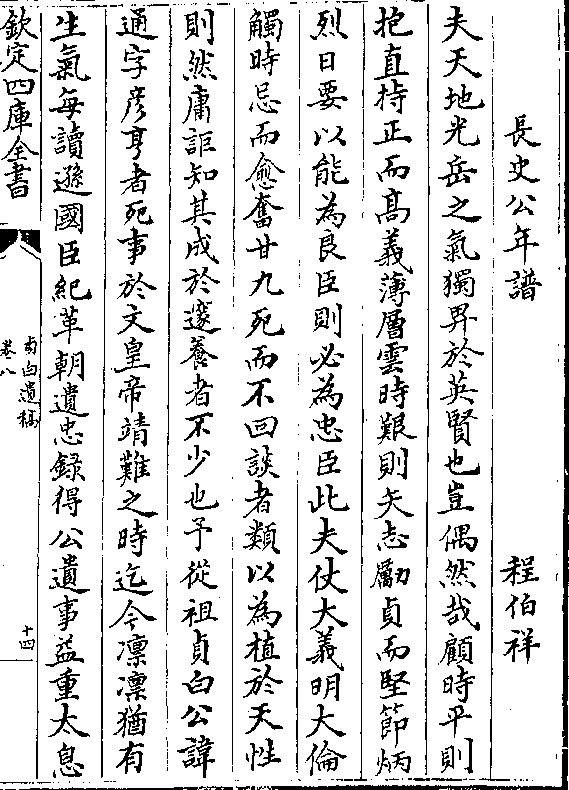 長史公年譜　程伯祥
夫天地光岳之氣獨畀於英賢也豈偶然哉顧時平則
抱直持正而髙義薄層雲時艱則矢志勵貞而堅節炳
烈日要以能為良臣則必為忠臣此夫仗大義明大倫
觸時忌而愈奮甘九死而不回談者類以為植於天性
則然庸詎知其成於邃養者不少也予從祖貞白公諱
通字彦亨者死事於文皇帝靖難之時迄今凛凛猶有
生氣每讀遜國臣紀革朝遺忠録得公遺事益重太息
欽定四庫全書
貞白遺稿
卷八
十四